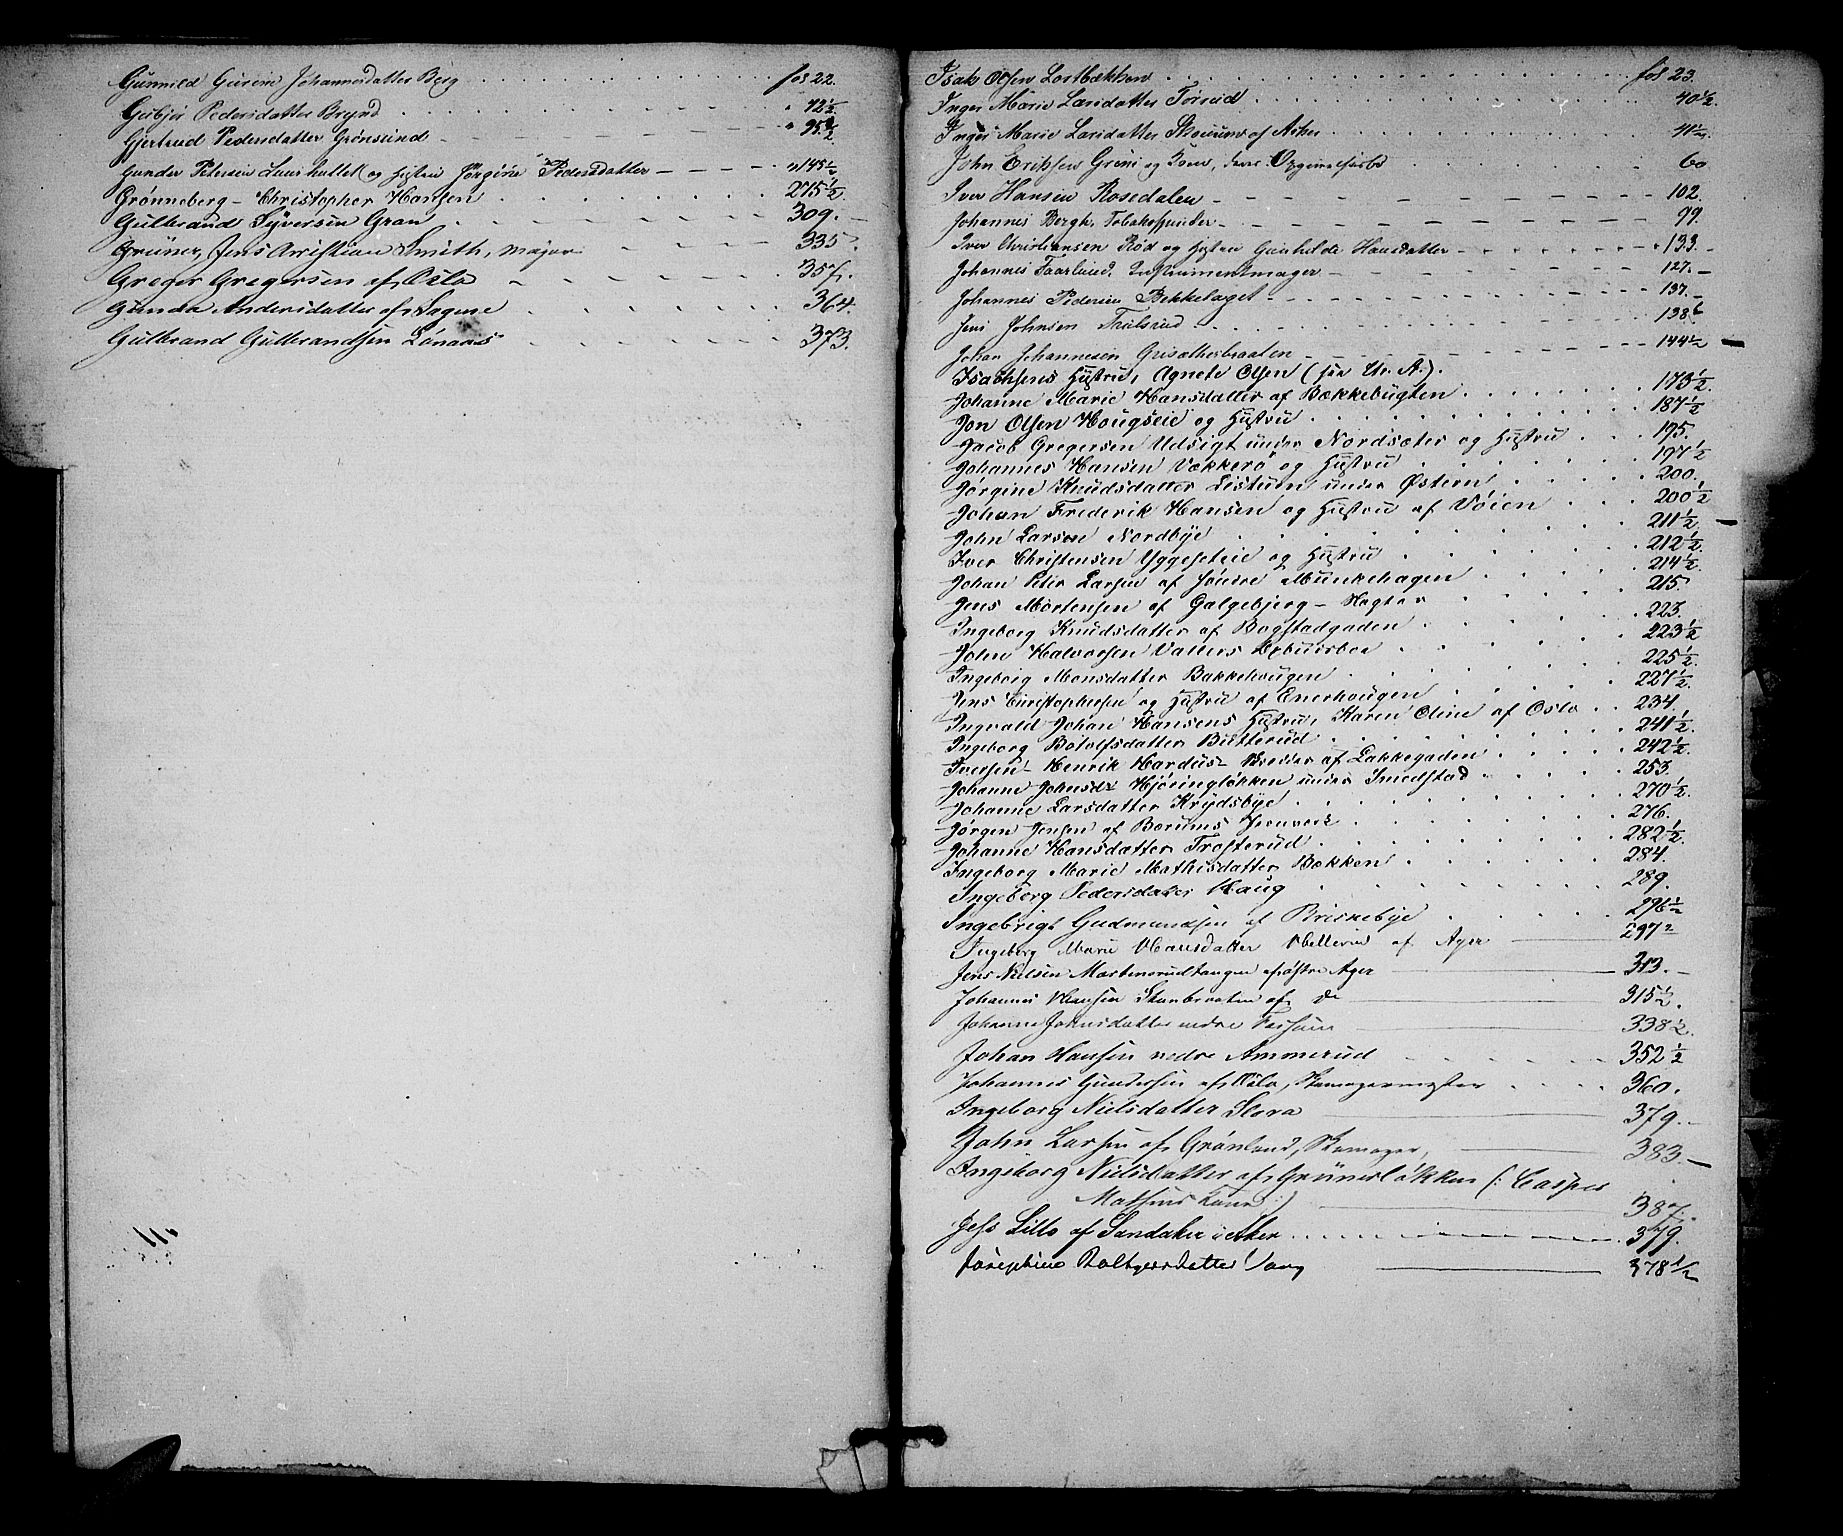 Gunnild Gurine Johannesdatter Berg . . . . fol 22.
Gubjør Pedersdatter Brynd . . . " 72½
Gjertrud Pedersdatter Grønsund - " 95½
Gunder Petersen Laushullet og Hustru Jørgine Pedersdatter - - - - "145½
Grønneberg - Christopher Hansen . . . . 275½.
Gulbrand Syversen Gran - - - - 309. -
Grüner, Jens Christian Smith, Major - - - - 335.
Greger Gregersen af Oslo - - - - 357.
Gunda Andersdatter af Sagene . . . . 364.
Gulbrand Gulbrandsen Lønaas . . . . 373.
Isak Olsen Lostbækken . . . . fol 23.
Inger Marie Larsdatter Torsrud . . . . 40½.
Inger Marie Larsdatter af Asker . . . . 41½.
John Eriksen Greni og Kone, 60
Iver Hansen Rosedalen - - - - 102.
Johannes Bergh, Tobaksspinder - - - - 99.
Iver Christiansen Rød og Hustru Gunhilde Hansdatter - - - - 133. -
Johannes Faarlund, Instrumentmager - - - - 127. -
Johannes Pedersen Bekkelaget - - - - 137. -
Jens Johnsen Thulsrud . . . . 138.
Johan Johannesen Grisætherbraaten - - - - 144½
Isachsens Hustru, Agnete Olsen (see Litr. A.).
Johanne Marie Hansdatter af Bækkebugten . . . . 173½.
Jon Olsen Hougseie og Hustru . . . . 187½
Jacob Gregersen Udsigt under Nordsæter og Hustru . . . 195.
Johannes Hansen Vækkerø og Hustru . . . . 197½
Jørgine Knudsdatter Listuen under Østern . . . . 200.
Johan Frederik Hansen og Hustru af Vøien . . . 200½
John Larsen Nordbye . . . . 211½.
Iver Christensen Yggeseteie og Hustru . . . . 212½.
Johan Peter Larsen af Søndre Munkehagen . . . . 214½.
Jens Mortensen af Galgebjerg - Vægter . . . . 215
Ingeborg Knudsdatter af Bogstadgaden . . . . 223.
John Halvorsen Valлers . . . . 223½
Ingeborg Monsdatter Bakkehougen . . . . 225½.
Jens Christophersen og Hustru af Enerhougen . . . . 227½.
Ingvald Johan Hansens Hustru, Karen Oline af Oslo . . 234.
Ingeborg Botolfsdatter Butterud . . . . 241½.
Iversen - Henrik Hardus - af Lakkegaden . . . . 242½.
Johanne Johnsdr Hjøringløkken under Smedstad . . . . 253.
Johanne Larsdatter Krydsbye . . . . 270½.
Jørgen Jensen af Bærums Jernverk . . . . 276.
Johanne Hansdatter Trosterud . . . . 282½.
Ingeborg Marie Mathisdatter Bækken . . . . 284.
Ingeborg Pedersdatter Haug . . . . 289.
Ingebrigt Gudmundsen af Briskebye . . . . 296½
Ingeborg Marie Hansdatter af Ager 297½
Jens Nielsen Mortensrudtangen af østre Ager 313. -
Johannes Hansen Stenbraaten af do 315½.
Johanne Johnsdatter nedre 338½.
Johan Hansen nedre Ammerud . . . . 352½
Johannes Gundersen af Oslo, Skomagermester . . . . 360.
Ingeborg Nielsdatter Slora 379. -
John Larsen af Grønland, Skomager, 383. -
Ingeborg Nielsdatter af Grünerløkken (: Casper
Mathsens Kone :) 387.
Jess Lillo af Sandaker i Aker . . . . 379.
Josephine Holtgersdatter Vang 378½